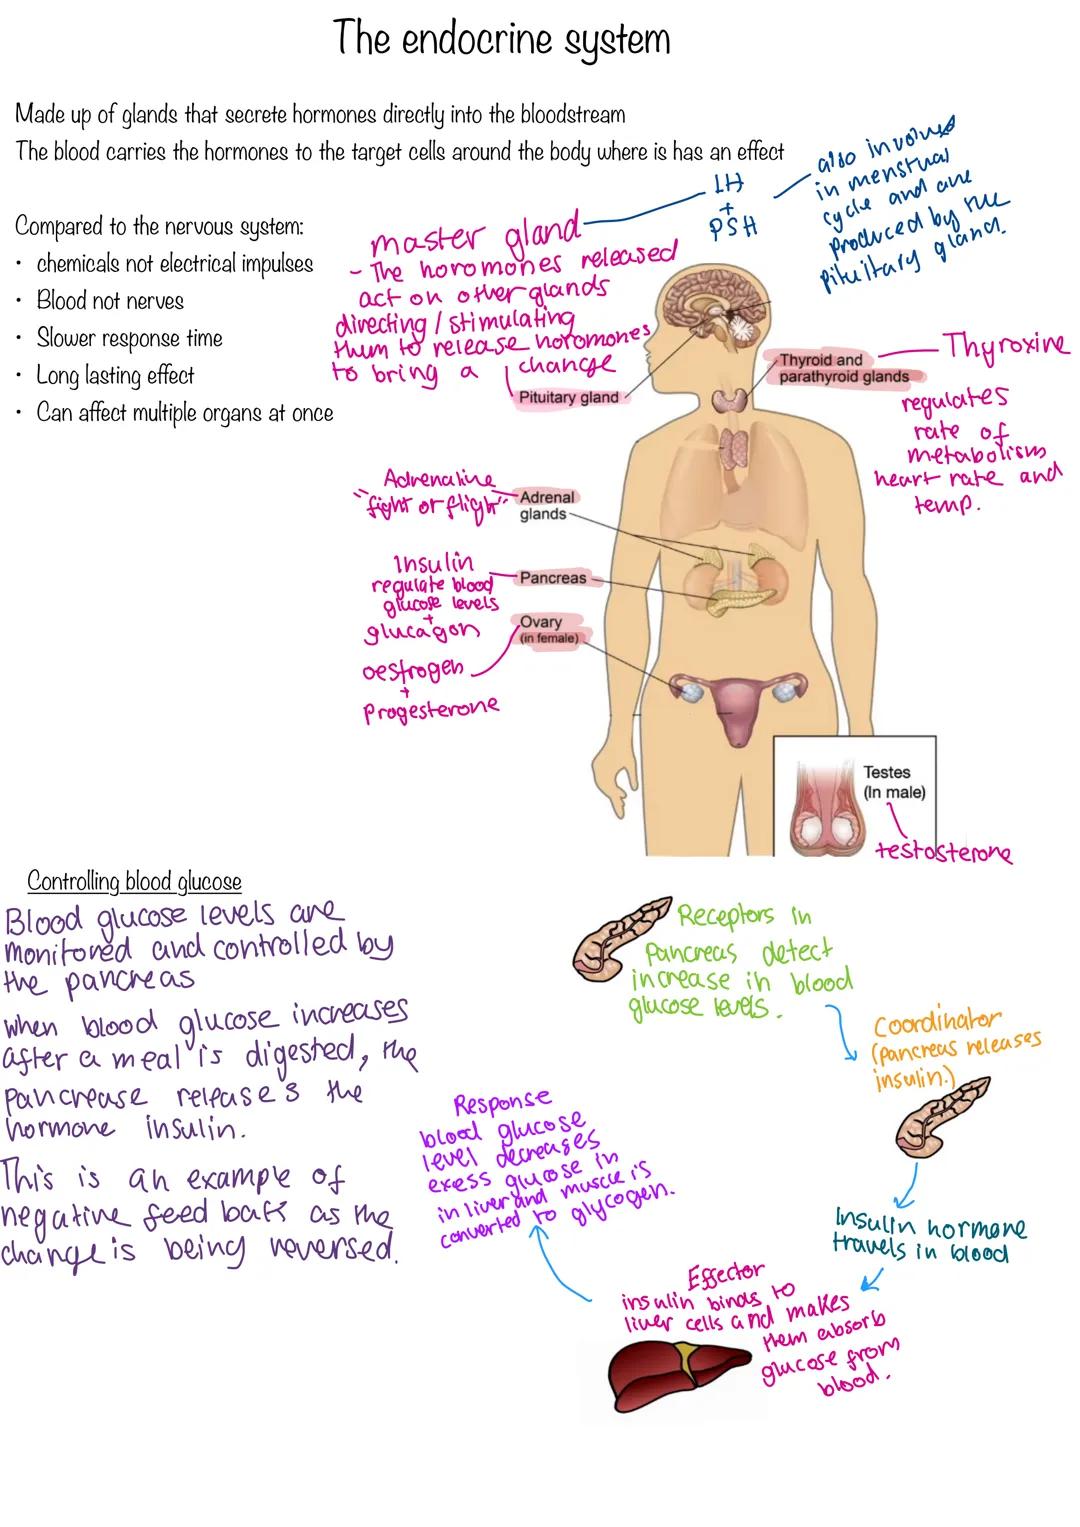 The endocrine system
Made up of glands that secrete hormones directly into the bloodstream
The blood carries the hormones to the target cells around the body where is has an effect
Compared to the nervous system:
• chemicals not electrical impulses
• Blood not nerves
• Slower response time
• Long lasting effect
• Can affect multiple organs at once
LH
+
PSH
also involved
in menstrual
cycle and are
produced by the
pituitary gland.
master gland
- The horomones released
act on other glands
directing / stimulating
them to release horomones
to bring a change
Pituitary gland
Thyroid and
parathyroid glands
Thyroxine
regulates
rate of
metabolism
heart rate and
temp.
Adrenaline
"fight or flight"
Adrenal
glands
Insulin
regulate blood
glucose levels
+
glucagon
Pancreas
Ovary
(in female)
oestrogen
+
Progesterone
Testes
(In male)
testosterone
Controlling blood glucose
Blood glucose levels are
monitored and controlled by
the pancreas
when blood glucose increases
after a meal is digested, the
pancrease release's the
hormone insulin.
This is an example of
negative feed back as the
change is being reversed.
Receptors in
Pancreas detect
increase in blood
glucose levels.
Coordinator
(pancreas releases
insulin.)
Insulin hormone
travels in blood
Effector
insulin binds to
liver cells and makes
them absorb
glucose from
blood.
Response
blood glucose
level decreases
exess glucose in
in liver and muscle is
converted to glycogen.